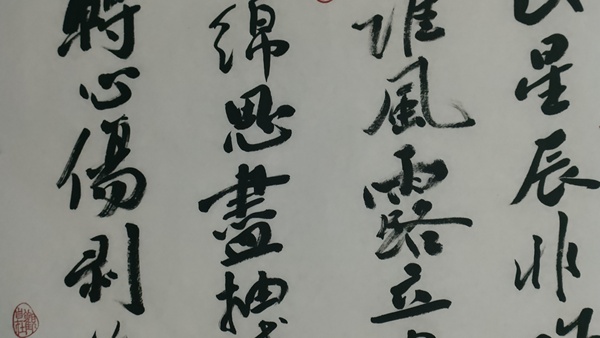 星辰非
誰風露立
綿思盡抽
轉心傷剝